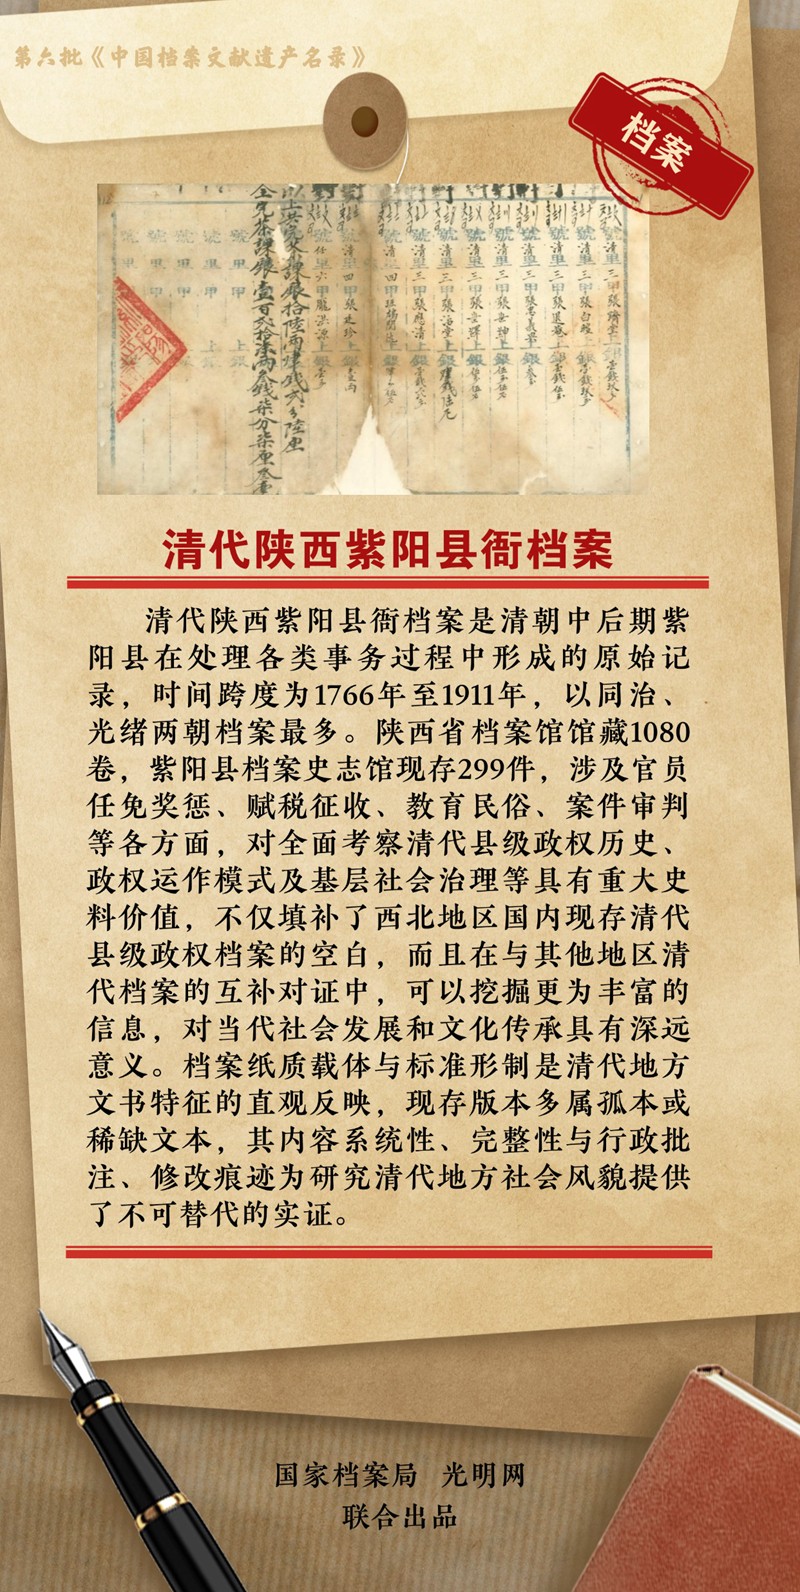 第六批《中国档案文献遗产名录》
档案
以上共完茶課銀拾陸兩肆錢弍分陸厘
清代陕西紫阳县衙档案
清代陕西紫阳县衙档案是清朝中后期紫
阳县在处理各类事务过程中形成的原始记
录，时间跨度为1766年至1911年，以同治、
光绪两朝档案最多。陕西省档案馆馆藏1080
卷，紫阳县档案史志馆现存299件，涉及官员
任免奖惩、赋税征收、教育民俗、案件审判
等各方面，对全面考察清代县级政权历史、
政权运作模式及基层社会治理等具有重大史
料价值，不仅填补了西北地区国内现存清代
县级政权档案的空白，而且在与其他地区清
代档案的互补对证中，可以挖掘更为丰富的
信息，对当代社会发展和文化传承具有深远
意义。档案纸质载体与标准形制是清代地方
文书特征的直观反映，现存版本多属孤本或
稀缺文本，其内容系统性、完整性与行政批
注、修改痕迹为研究清代地方社会风貌提供
了不可替代的实证。
国家档案局 光明网
联合出品